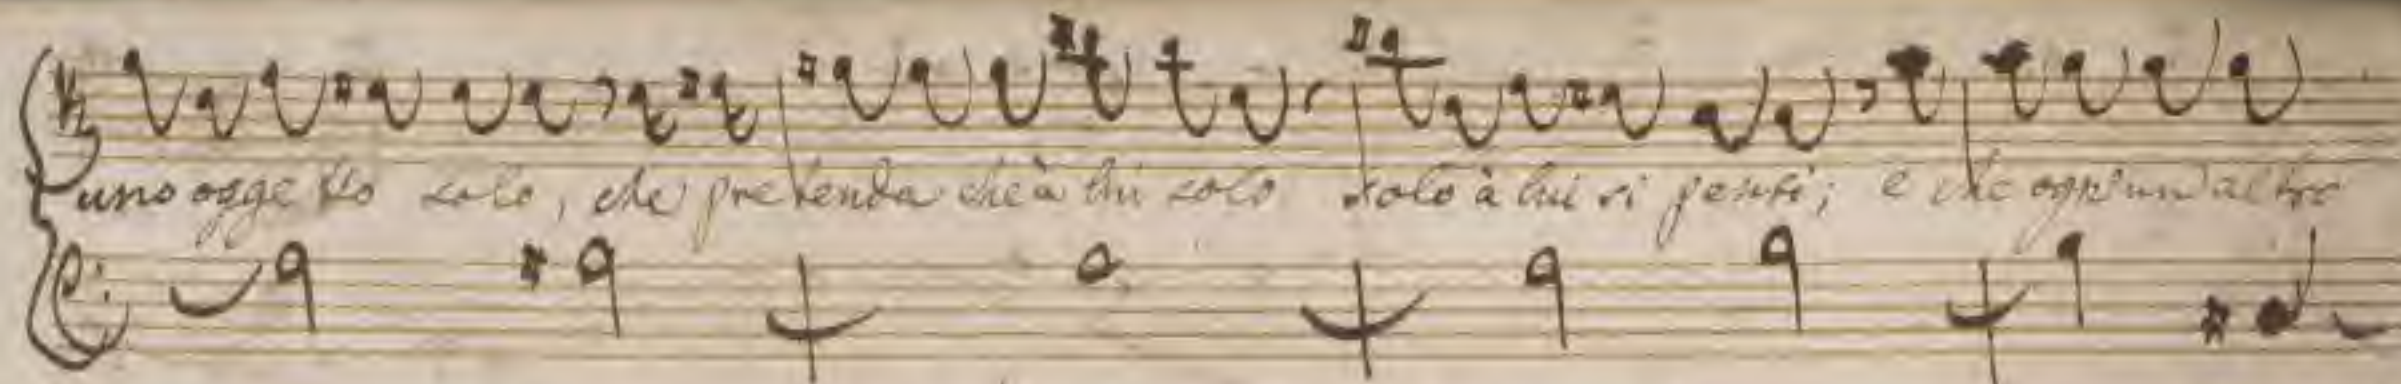 uno oggetto solo, che pretenda che à lui solo solo à lui si pensi; e che ogni un altro